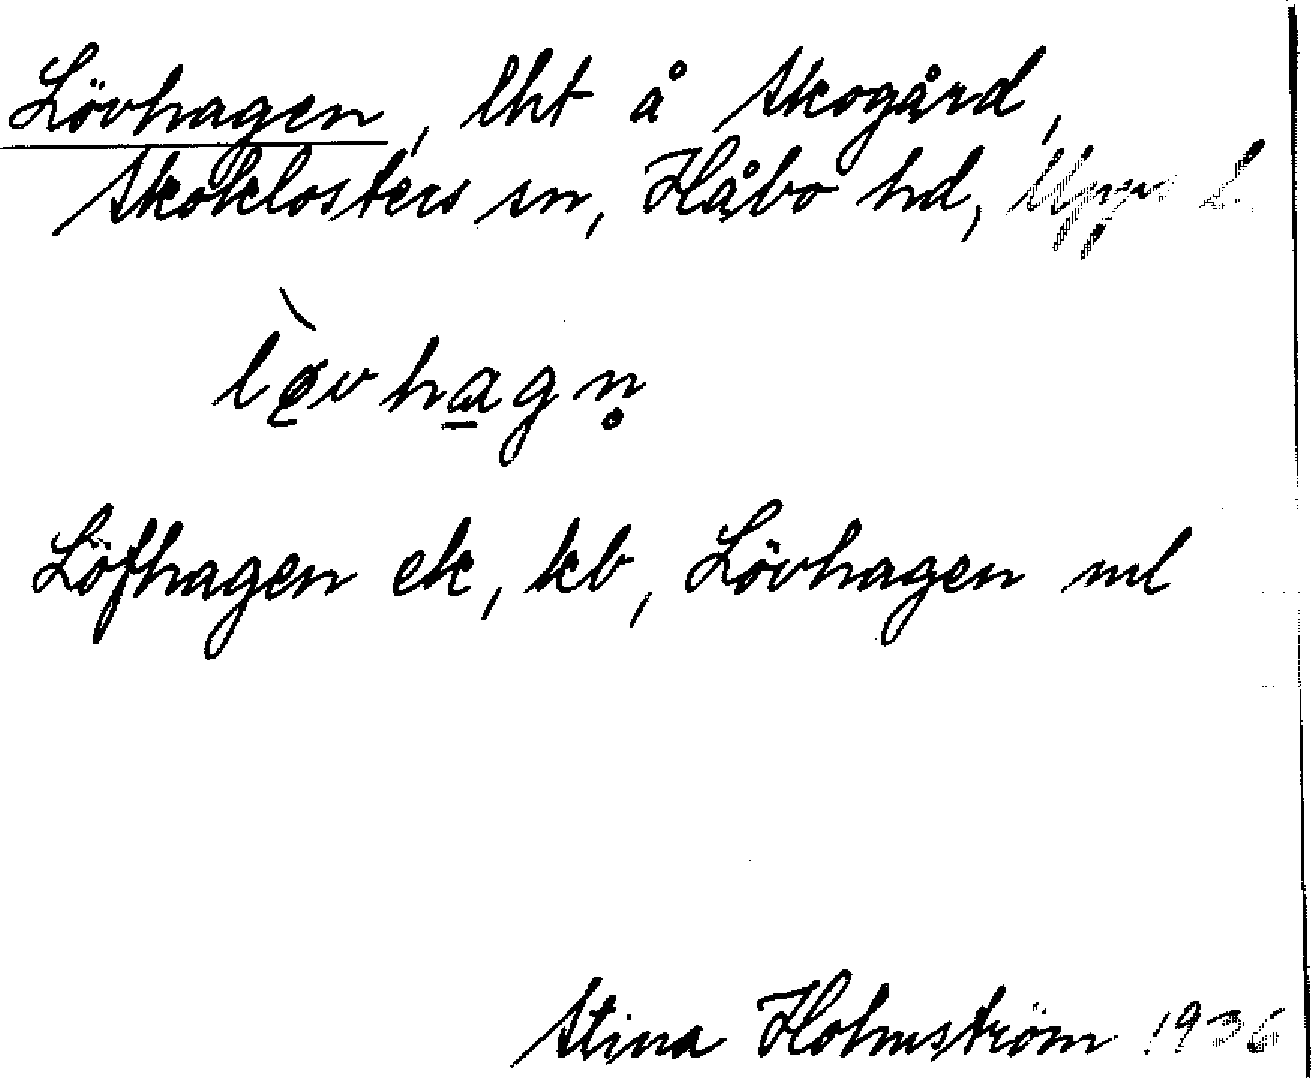 Lövhagen, lht å Skogård,
Skoklosters sn, Håbo hd, Upps l.
lø̀vhagn̥
Löfhagen ek, kb, Lövhagen ml
Stina Holmström 1936